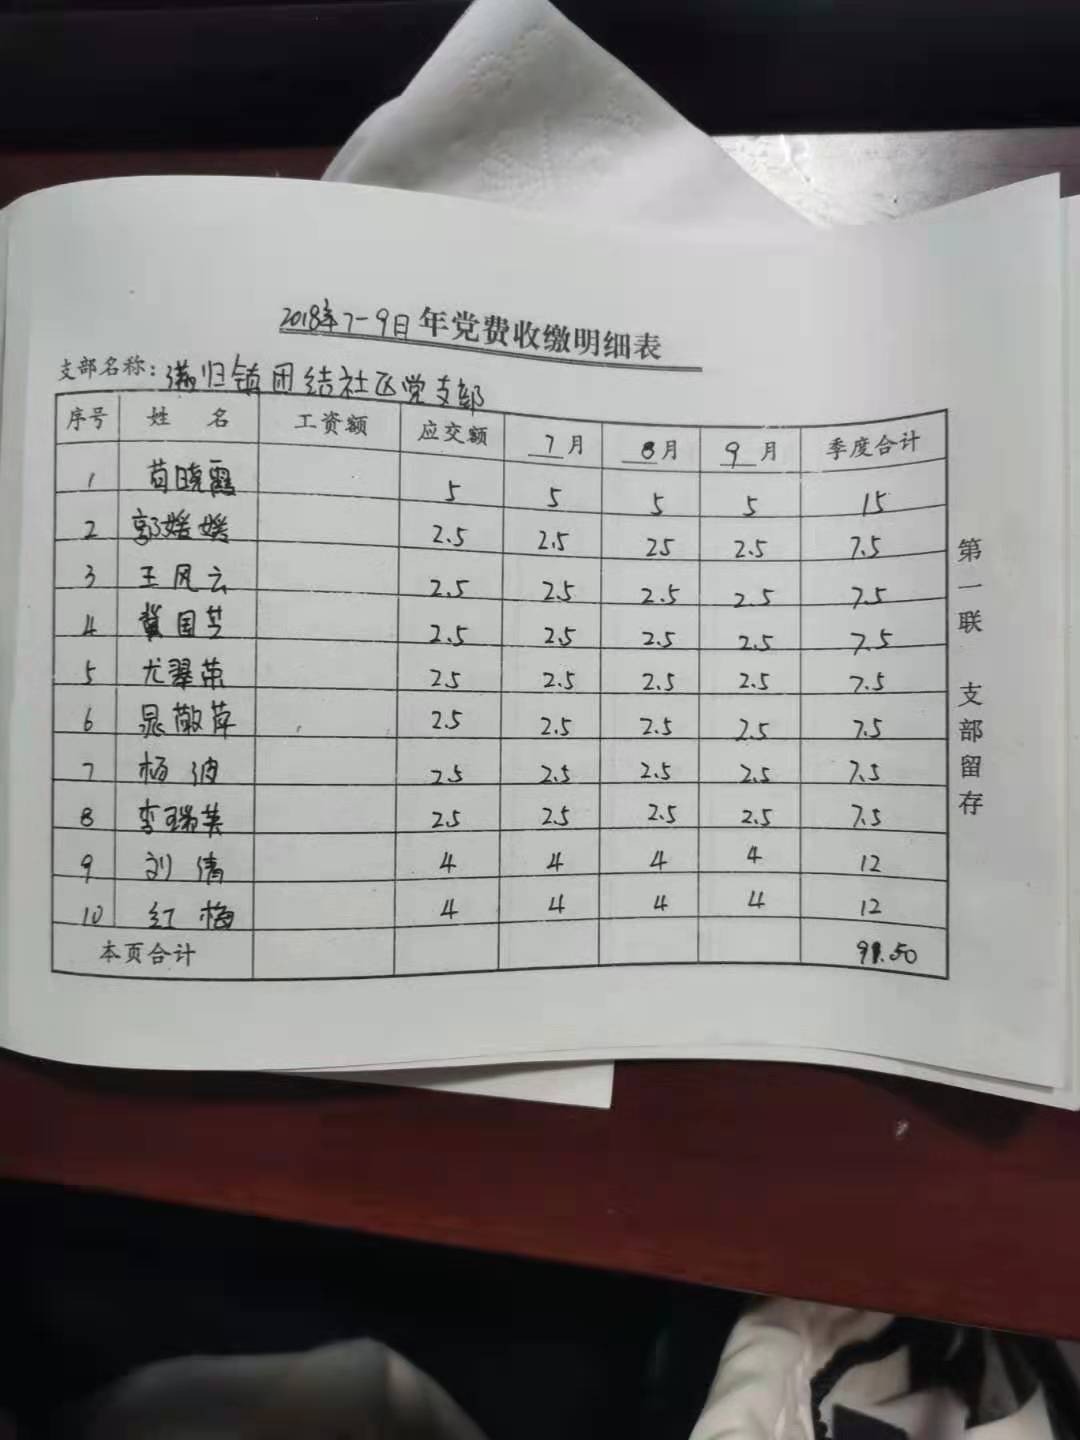 2018年7-9日 年党费收缴明细表
支部名称：满归镇团结社区党支部
序号 姓 名 工资额 应交额 7月 8月 9月 季度合计
1 苟晓霞 5 5 5 5 15
2 郭媛媛 2.5 2.5 25 2.5 7.5
3 王风云 2.5 2.5 2.5 2.5 7.5
4 冀国芳 2.5 2.5 2.5 2.5 7.5
5 尤翠荣 25 2.5 2.5 2.5 7.5
6 晁敬萍 2.5 2.5 2.5 2.5 7.5
7 杨波 2.5 2.5 2.5 2.5 7.5
8 李瑞英 2.5 2.5 2.5 2.5 7.5
9 刘倩 4 4 4 4 12
10 红梅 4 4 4 4 12
本页合计 91.50
第一联 支部留存